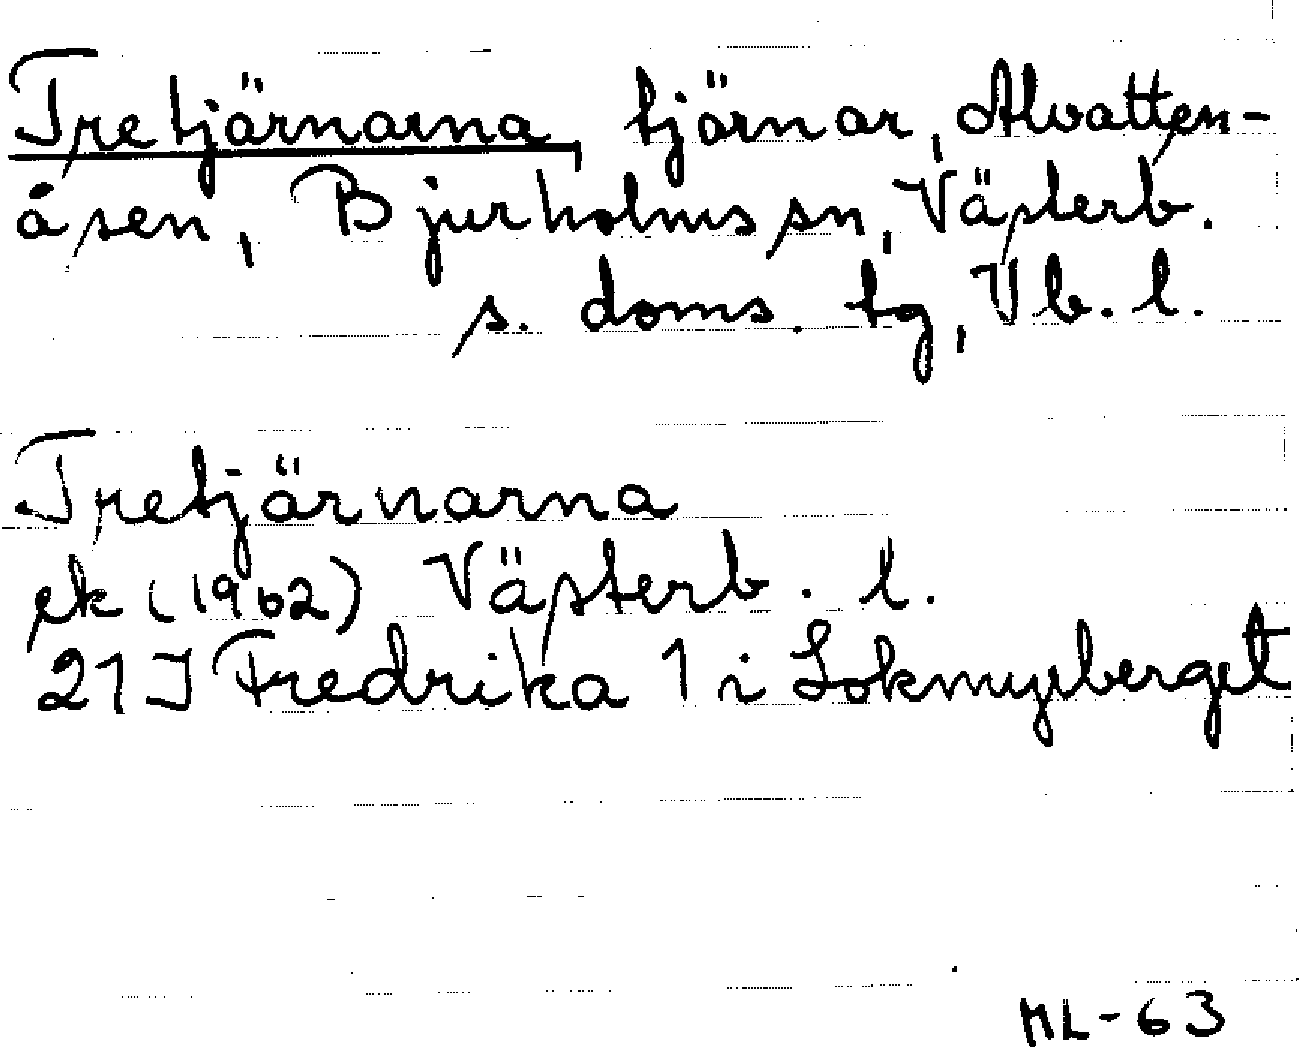 Tretjärnarna, tjärnar, Alvatten-
åsen, Bjurholms sn, Västerb.
s. doms. tg, Vb. l.
Tretjärnarna
ek (1962) Västerb. l.
21J Fredrika 1 i Lokmyrberget
ML-63